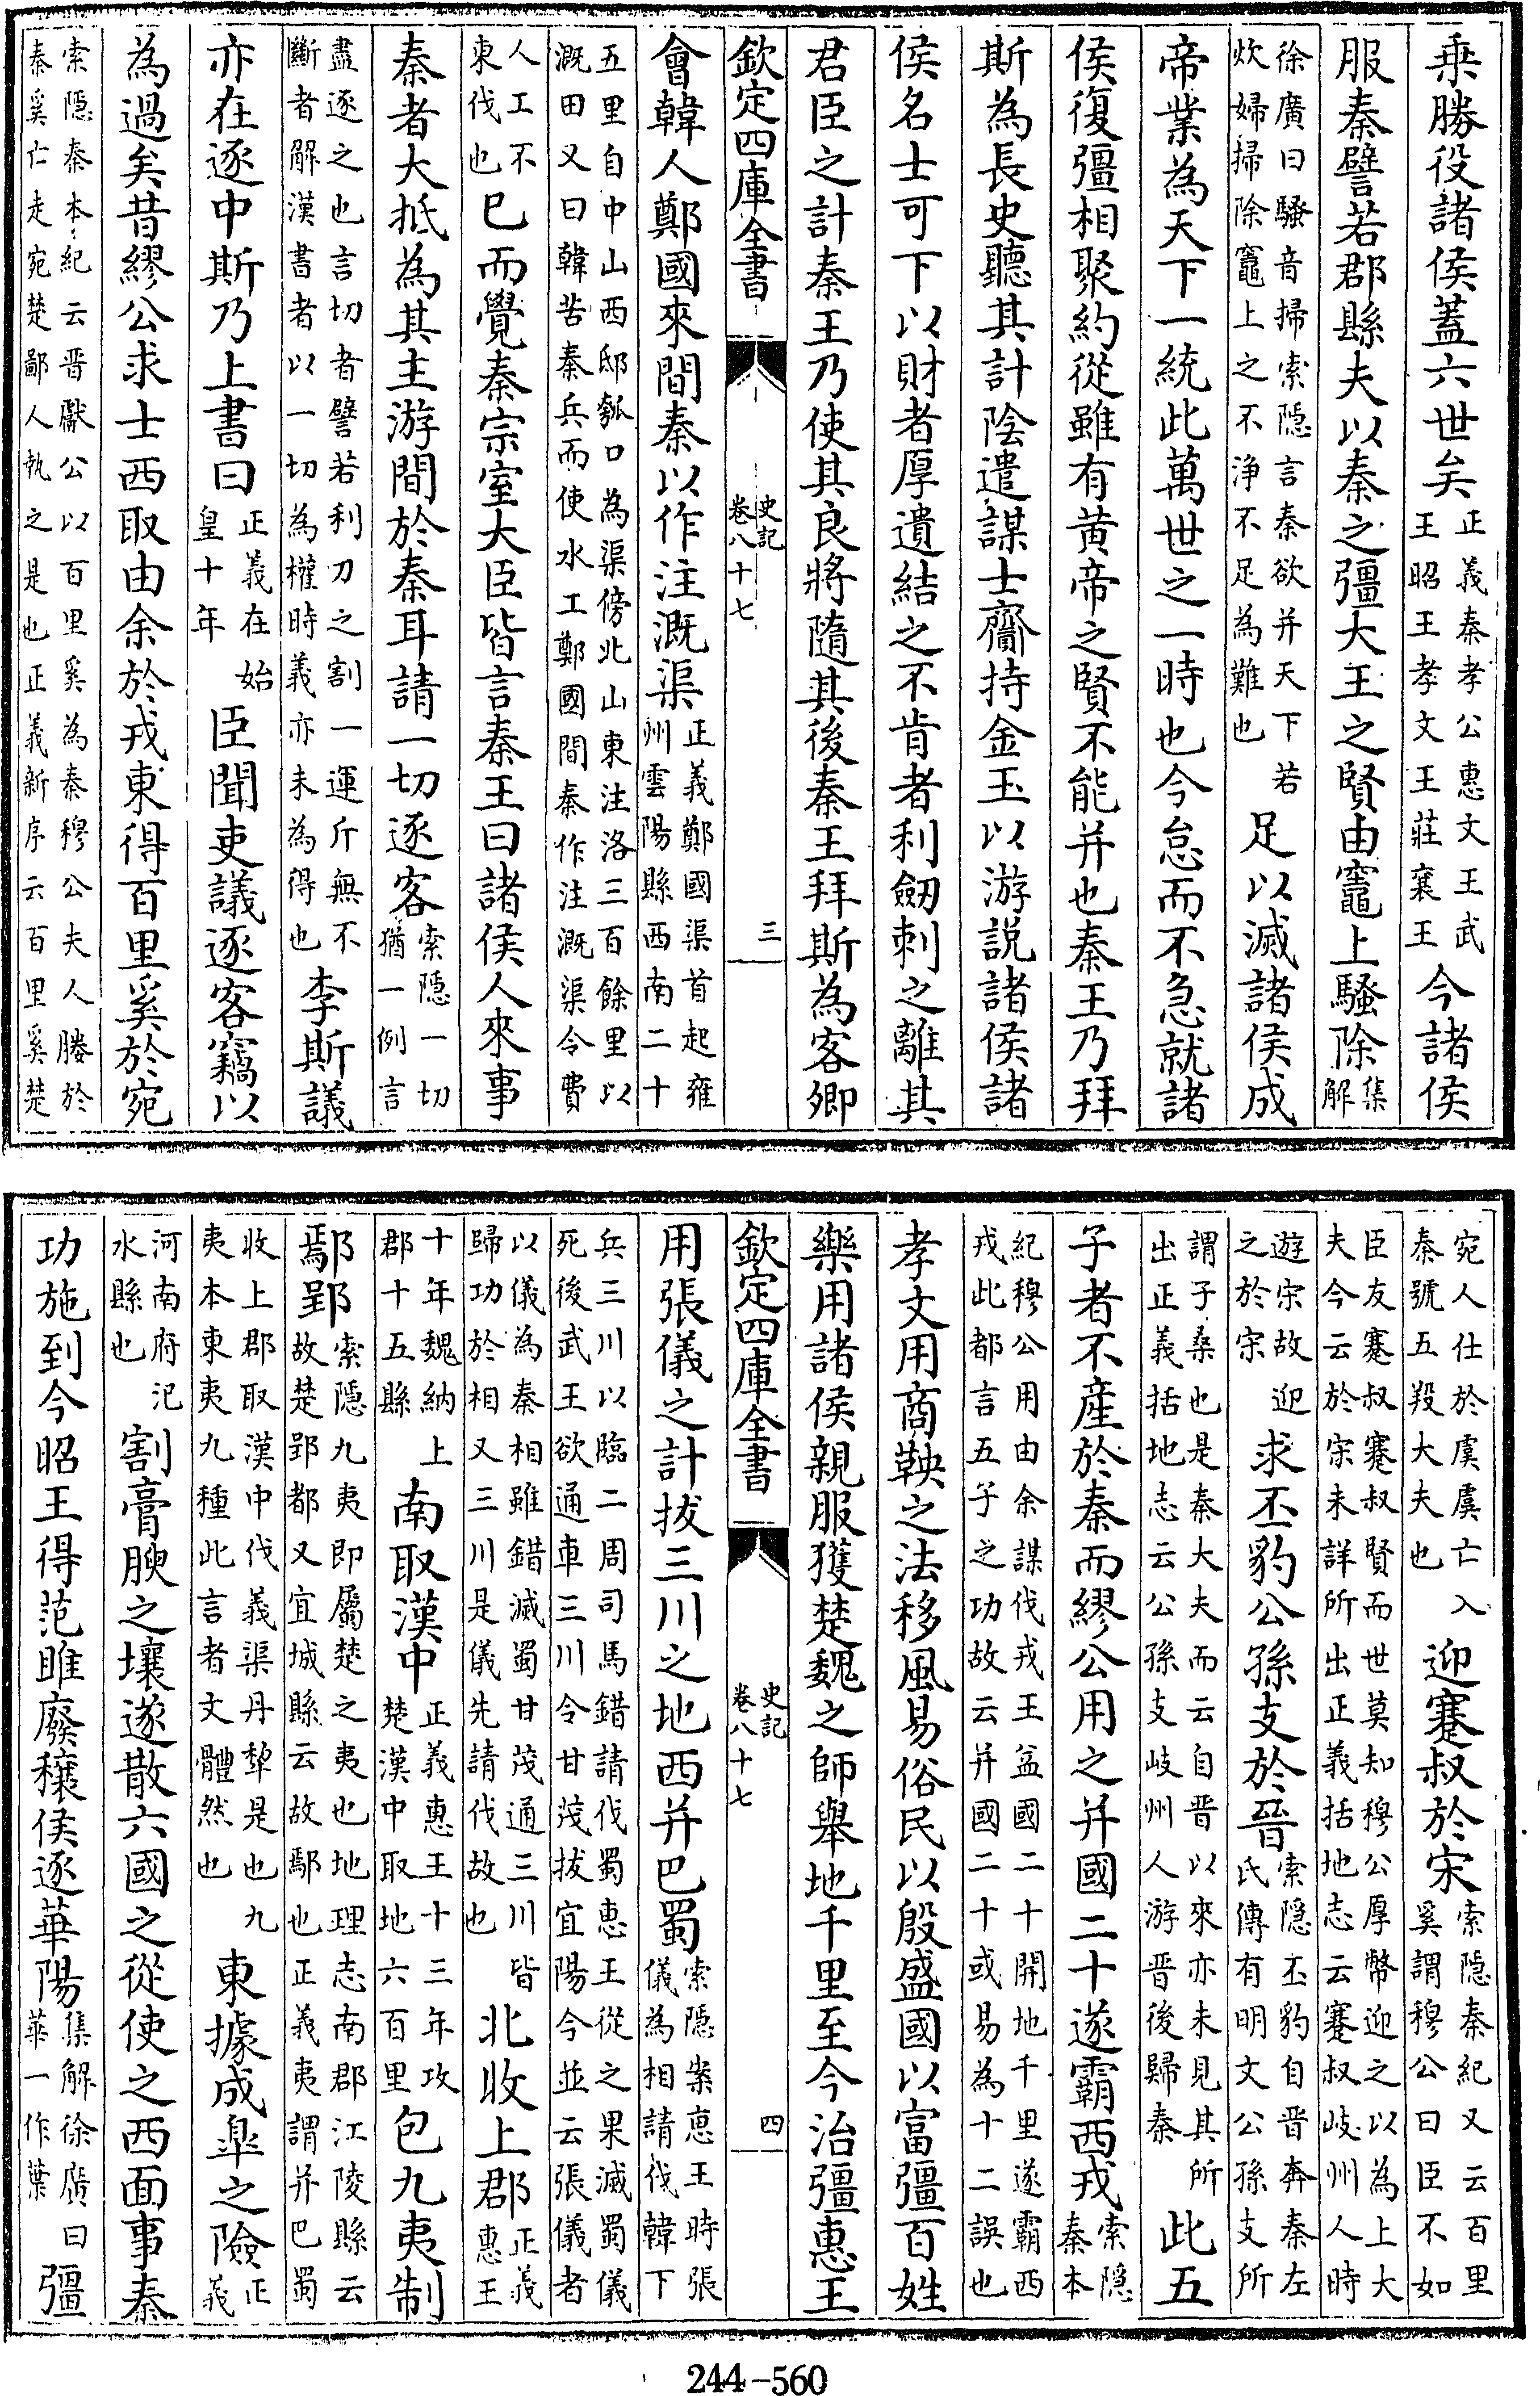 乗勝役諸侯蓋六世矣正義秦孝公惠文王武王昭王孝文王莊襄王今諸侯
服秦譬若郡縣夫以秦之彊大王之賢由竈上騷除集解
徐廣曰騷音掃索隱言秦欲并天下若炊婦掃除竈上之不淨不足為難也足以滅諸侯成
帝業為天下一統此萬世之一時也今怠而不急就諸
侯復彊相聚約從雖有黄帝之賢不能并也秦王乃拜
斯為長史聽其計陰遣謀士齎持金玉以游説諸侯諸
侯名士可下以財者厚遺結之不肯者利劒刺之離其
君臣之計秦王乃使其良將隨其後秦王拜斯為客卿
欽定四庫全書 史記卷八十七 三
會韓人鄭國來間秦以作注溉渠正義鄭國渠首起雍州雲陽縣西南二十
五里自中山西邸瓠口為渠傍北山東注洛三百餘里以溉田又曰韓苦秦兵而使水工鄭國間秦作注溉渠令費
人工不東伐也已而覺秦宗室大臣皆言秦王曰諸侯人來事
秦者大抵為其主游間於秦耳請一切逐客索隱一切猶一例言
盡逐之也言切者譬若利刀之割一運斤無不斷者解漢書者以一切為權時義亦未為得也李斯議
亦在逐中斯乃上書曰正義在始皇十年臣聞吏議逐客竊以
為過矣昔繆公求士西取由余於戎東得百里奚於宛
索隱秦本紀云晉獻公以百里奚為秦穆公夫人媵於秦奚亡走宛楚鄙人執之是也正義新序云百里奚楚
宛人仕於虞虞亡入秦號五羖大夫也迎蹇叔於宋索隱秦紀又云百里奚謂穆公曰臣不如
臣友蹇叔蹇叔賢而世莫知穆公厚幣迎之以為上大夫今云於宋未詳所出正義括地志云蹇叔岐州人時
遊宋故迎之於宋求丕豹公孫支於晉索隱丕豹自晉奔秦左氏傳有明文公孫支所
謂子桑也是秦大夫而云自晉以來亦未見其所出正義括地志云公孫支岐州人游晉後歸秦此五
子者不產於秦而繆公用之并國二十遂霸西戎索隱秦本
紀穆公用由余謀伐戎王益國二十開地千里遂霸西戎此都言五子之功故云并國二十或易為十二誤也
孝文用商鞅之法移風易俗民以殷盛國以富彊百姓
樂用諸侯親服獲楚魏之師舉地千里至今治彊惠王
欽定四庫全書 史記卷八十七 四
用張儀之計拔三川之地西并巴蜀索隱案惠王時張儀為相請伐韓下
兵三川以臨二周司馬錯請伐蜀惠王從之果滅蜀儀死後武王欲通車三川令甘茂拔宜陽今並云張儀者
以儀為秦相雖錯滅蜀甘茂通三川皆歸功於相又三川是儀先請伐故也北收上郡正義惠王
十年魏納上郡十五縣南取漢中正義惠王十三年攻楚漢中取地六百里包九夷制
鄢郢索隱九夷即屬楚之夷也地理志南郡江陵縣云故楚郢都又宜城縣云故鄢也正義夷謂并巴蜀
收上郡取漢中伐義渠丹犂是也九夷本東夷九種此言者文體然也東據成臯之險正義
河南府汜水縣也割膏腴之壤遂散六國之從使之西面事秦
功施到今昭王得范雎廢穰侯逐華陽集解徐廣曰華一作葉彊
244-560